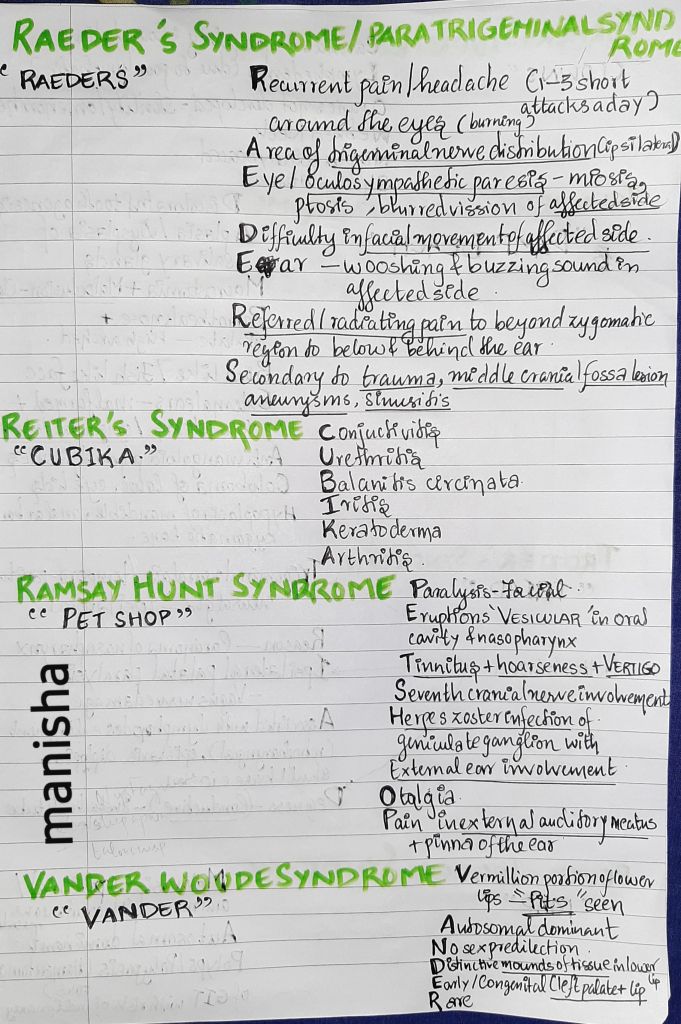 RAEDER'S SYNDROME/PARATRIGEMINAL SYND
ROME
"RAEDERS"
Recurrent pain/headache (1-3 short
attacks a day)
around the eyes (burning)
Area of trigeminal nerve distribution (ipsilateral)
Eye/Oculosympathetic paresis - miosis,
ptosis, blurred vission of affected side
Difficulty in facial movement of affected side.
Ear - wooshing & buzzing sound in
affected side.
Referred/radiating pain to beyond zygomatic
region to below & behind the ear.
Secondary to trauma, middle cranial fossa lesion
aneurysms, sinusitis
REITER'S SYNDROME
"CUBIKA."
Conjuctivitis
Urethritis
Balanitis circinata.
Iritis
Keratoderma
Arthritis.
RAMSAY HUNT SYNDROME
"PET SHOP"
Paralysis-Facial.
Eruptions 'VESICULAR' in oral
cavity & nasopharynx
Tinnitus + hoarseness + VERTIGO
Seventh cranial nerve involvement
Herpes zoster infection of
geniculate ganglion with
External ear involvement
Otalgia.
Pain in external auditory meatus
+ pinna of the ear
manisha
VANDER WOUDE SYNDROME
"VANDER"
Vermillion portion of lower
lips - "Pits" seen
Autosomal dominant
No sex predilection.
Distinctive mounds of tissue in lower
lip
Early/Congenital Cleft palate + lip
Rare